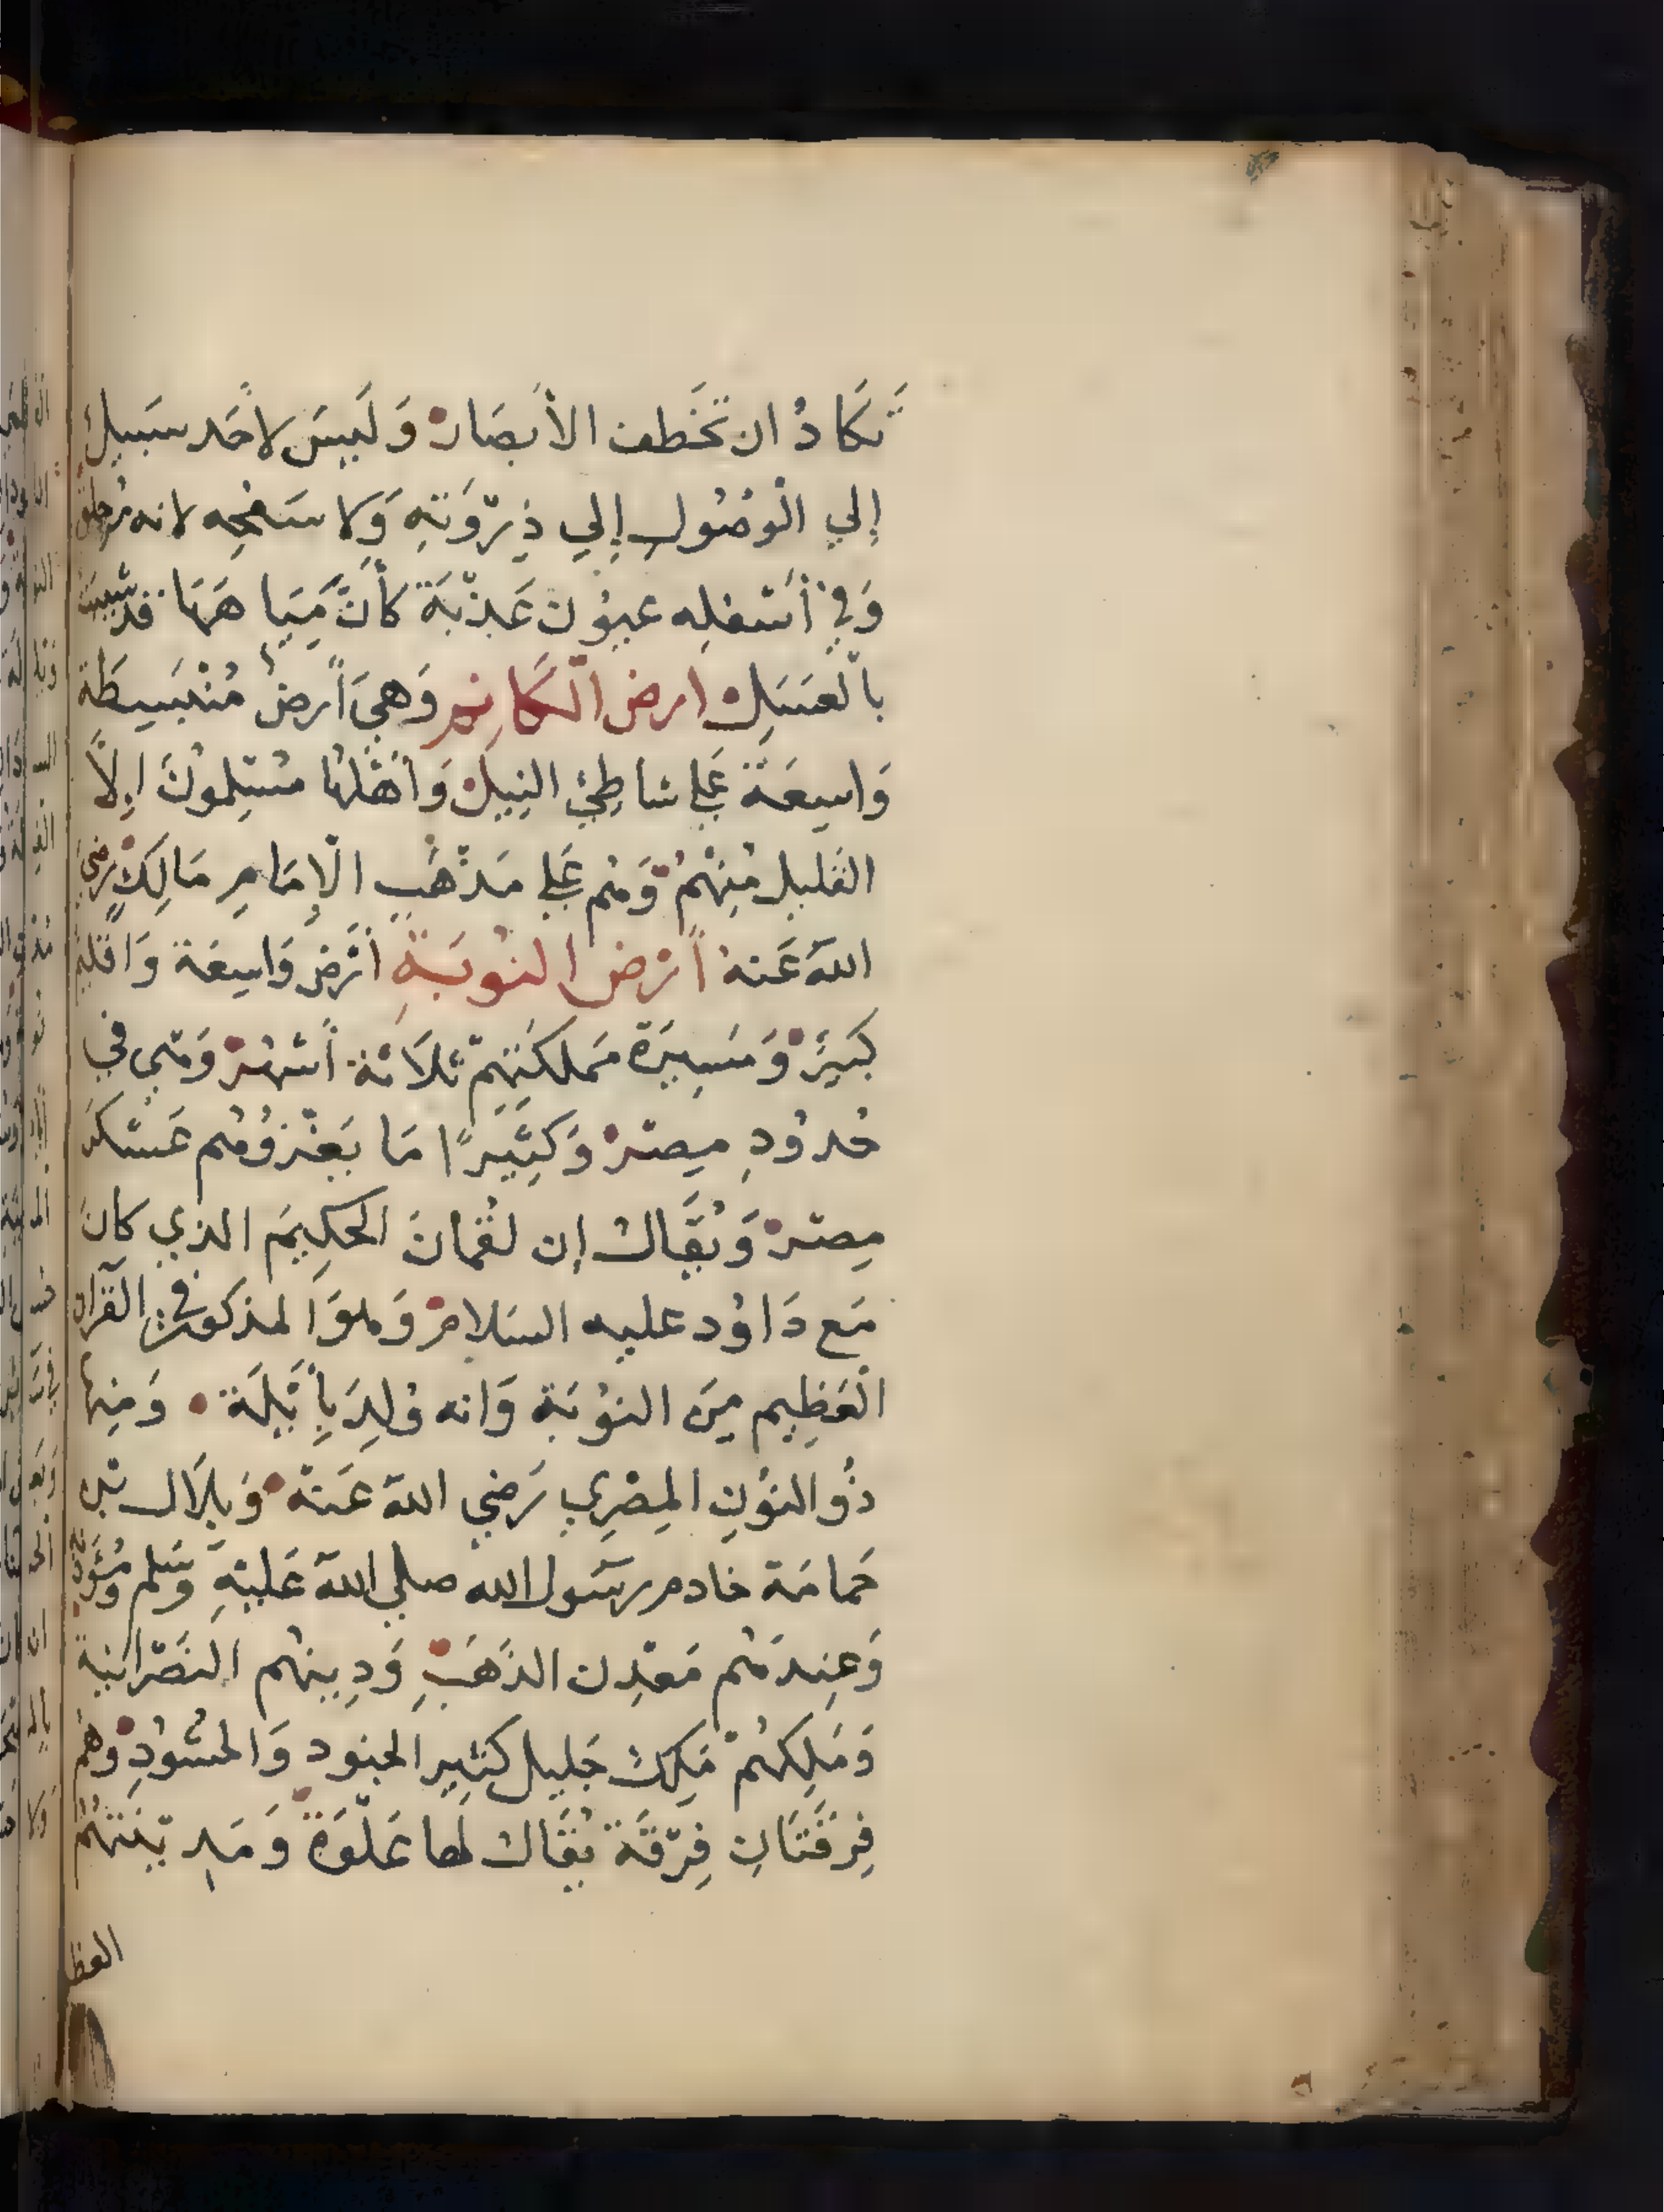 تَكَادُ ان تَخَطف الأبصَار وَلَيسَ لاحَد سَبيل
إلي الْوصُولِ إلي ذِرْوَتهِ وَلا سَفحِه لانه مزلق
وَفي أسْفلِه عيُون عَذْبَة كأنَّ مِيَاهَهَا قد شيبت
بالعَسَلِ ارض الكَانِم وَهيَ أرضٌ مُنْبَسِطَة
وَاسِعَة عَلي شاطِئ النِيل وَأهْلهَا مُسْلِمونَ إلّا
القَليل مِنْهُمْ وَهُم عَلي مَذْهَبِ الْإمَامِ مَالِكْ رَضيَ
اللّهَ عَنه أرْض النُوبَةِ أرْضٌ وَاسِعَة وَاقليم
كَبيرٌ وَمَسِيرَة مَملكَتِهِمْ ثلَاثة أشهُر وَهي في
حُدُودِ مِصْر وَكَثِيرًا مَا يَغْزوُهُم عَسْكَر
مِصْر وَيُقَال إن لقْمانَ الحكِيمَ الذي كانَ
مَع دَاوُد عليه السَلامْ وَهوَ المذكور في القرآن
الْعَظِيم مِنَ النوُبَة وَانه وُلِدَ بِأَيْلَة وَمِنها
ذُو النوُنِ المِصْرِي رَضي اللهَ عَنهْ وَبِلَال بْن
حَمامَة خادم رسَول الله صلي الله عَليْهِ وَسَلم وَمُؤذنه
وَعِندَهُم مَعْدِن الذَهَبِ وَدِينهُم النَصْرانية
وَمَلِكهُمْ مَلِكْ جَليل كَثير الجنود وَالحشُودِ وَهُمْ
فِرقَتَانِ فِرْقَة يُقَال لها عَلْوَة وَمَدِينَتهُمُ
العظ